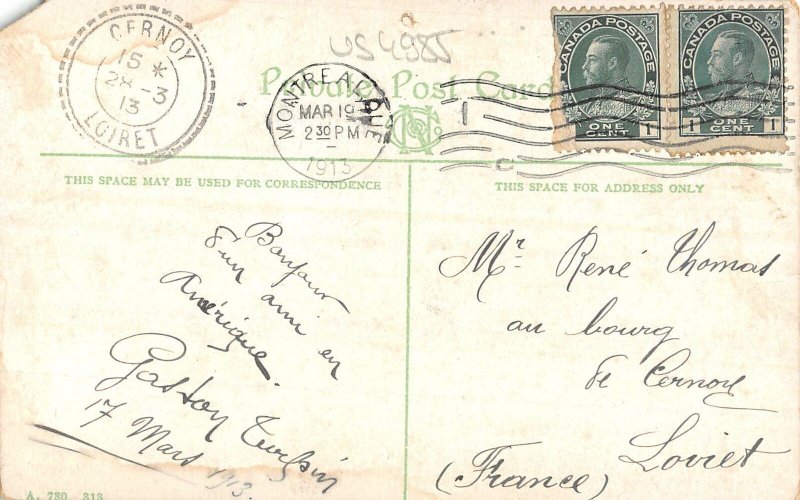 CERNOY
15 *
28-3
13
LOIRET
US 4985
Private Post Card
MONTREAL QUE
MAR 19
2 30 PM
1913
CANADA POSTAGE
ONE CENT
1 1
CANADA POSTAGE
ONE CENT
1 1
THIS SPACE MAY BE USED FOR CORRESPONDENCE
THIS SPACE FOR ADDRESS ONLY
Bonjour
d'un ami en
Amérique.
Gaston Turpin
17 Mars 1913.
Mr. René Thomas
au bourg
de Cernoy
Loiret
(France)
A. 730 313